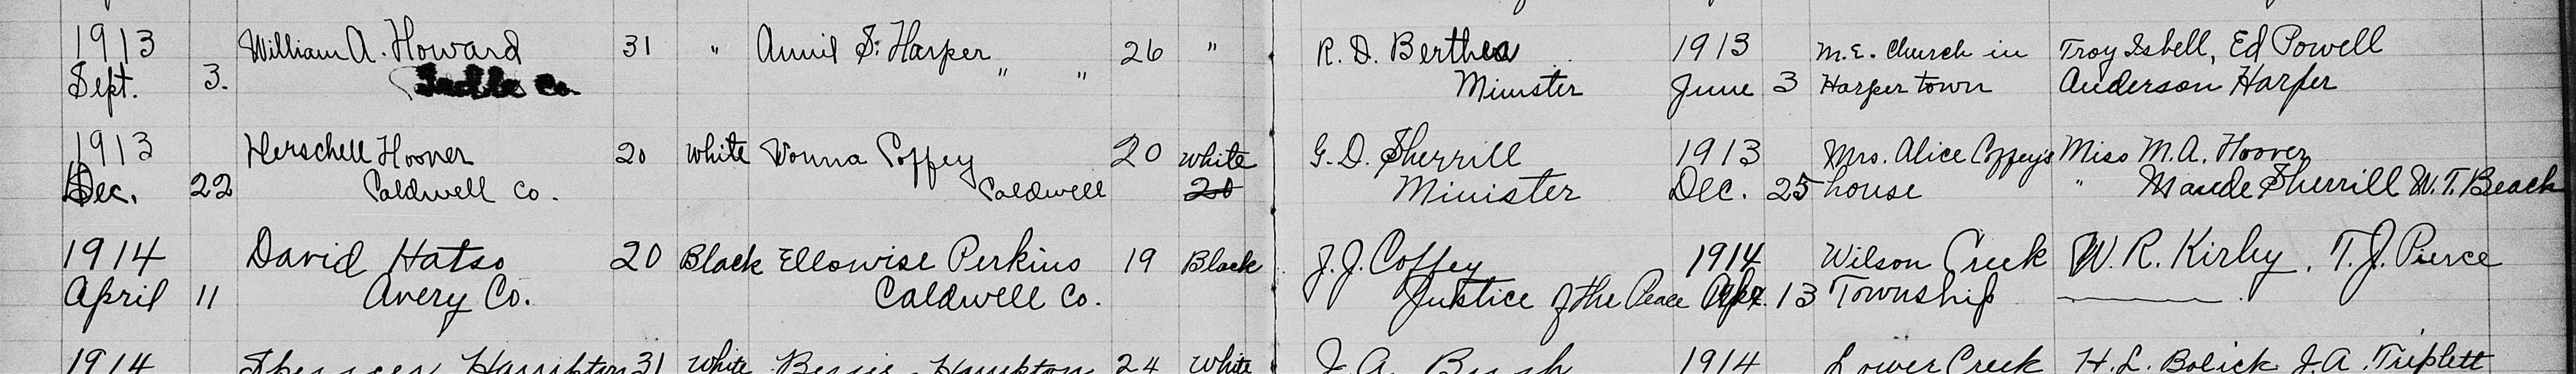 1913 William A. Howard 31 " Annil S. Harper 26 " R. D. Berthea 1913 M.E. Church in Troy Isbell, Ed Powell
Sept. 3. Co. " " Minister June 3 Harpertown Anderson Harper
1913 Herschell Hoover 20 White Vonna Coffey 20 White G. D. Sherrill 1913 Mrs. Alice Coffey's Miss M. A. Hoover
Dec. 22 Caldwell Co. Caldwell 20 Minister Dec. 25 house " Maude Sherrill W. T. Beach
1914 David Hatso 20 Black Ellowise Perkins 19 Black J. J. Coffey 1914 Wilson Creek W. R. Kirby, T. J. Pierce
April 11 Avery Co. Caldwell Co. Justice of the Peace Apr. 13 Township
1914 Hampton 31 White Hampton 24 White J. A. Bush 1914 Lower Creek H. L. Bolick J. A. Triplett